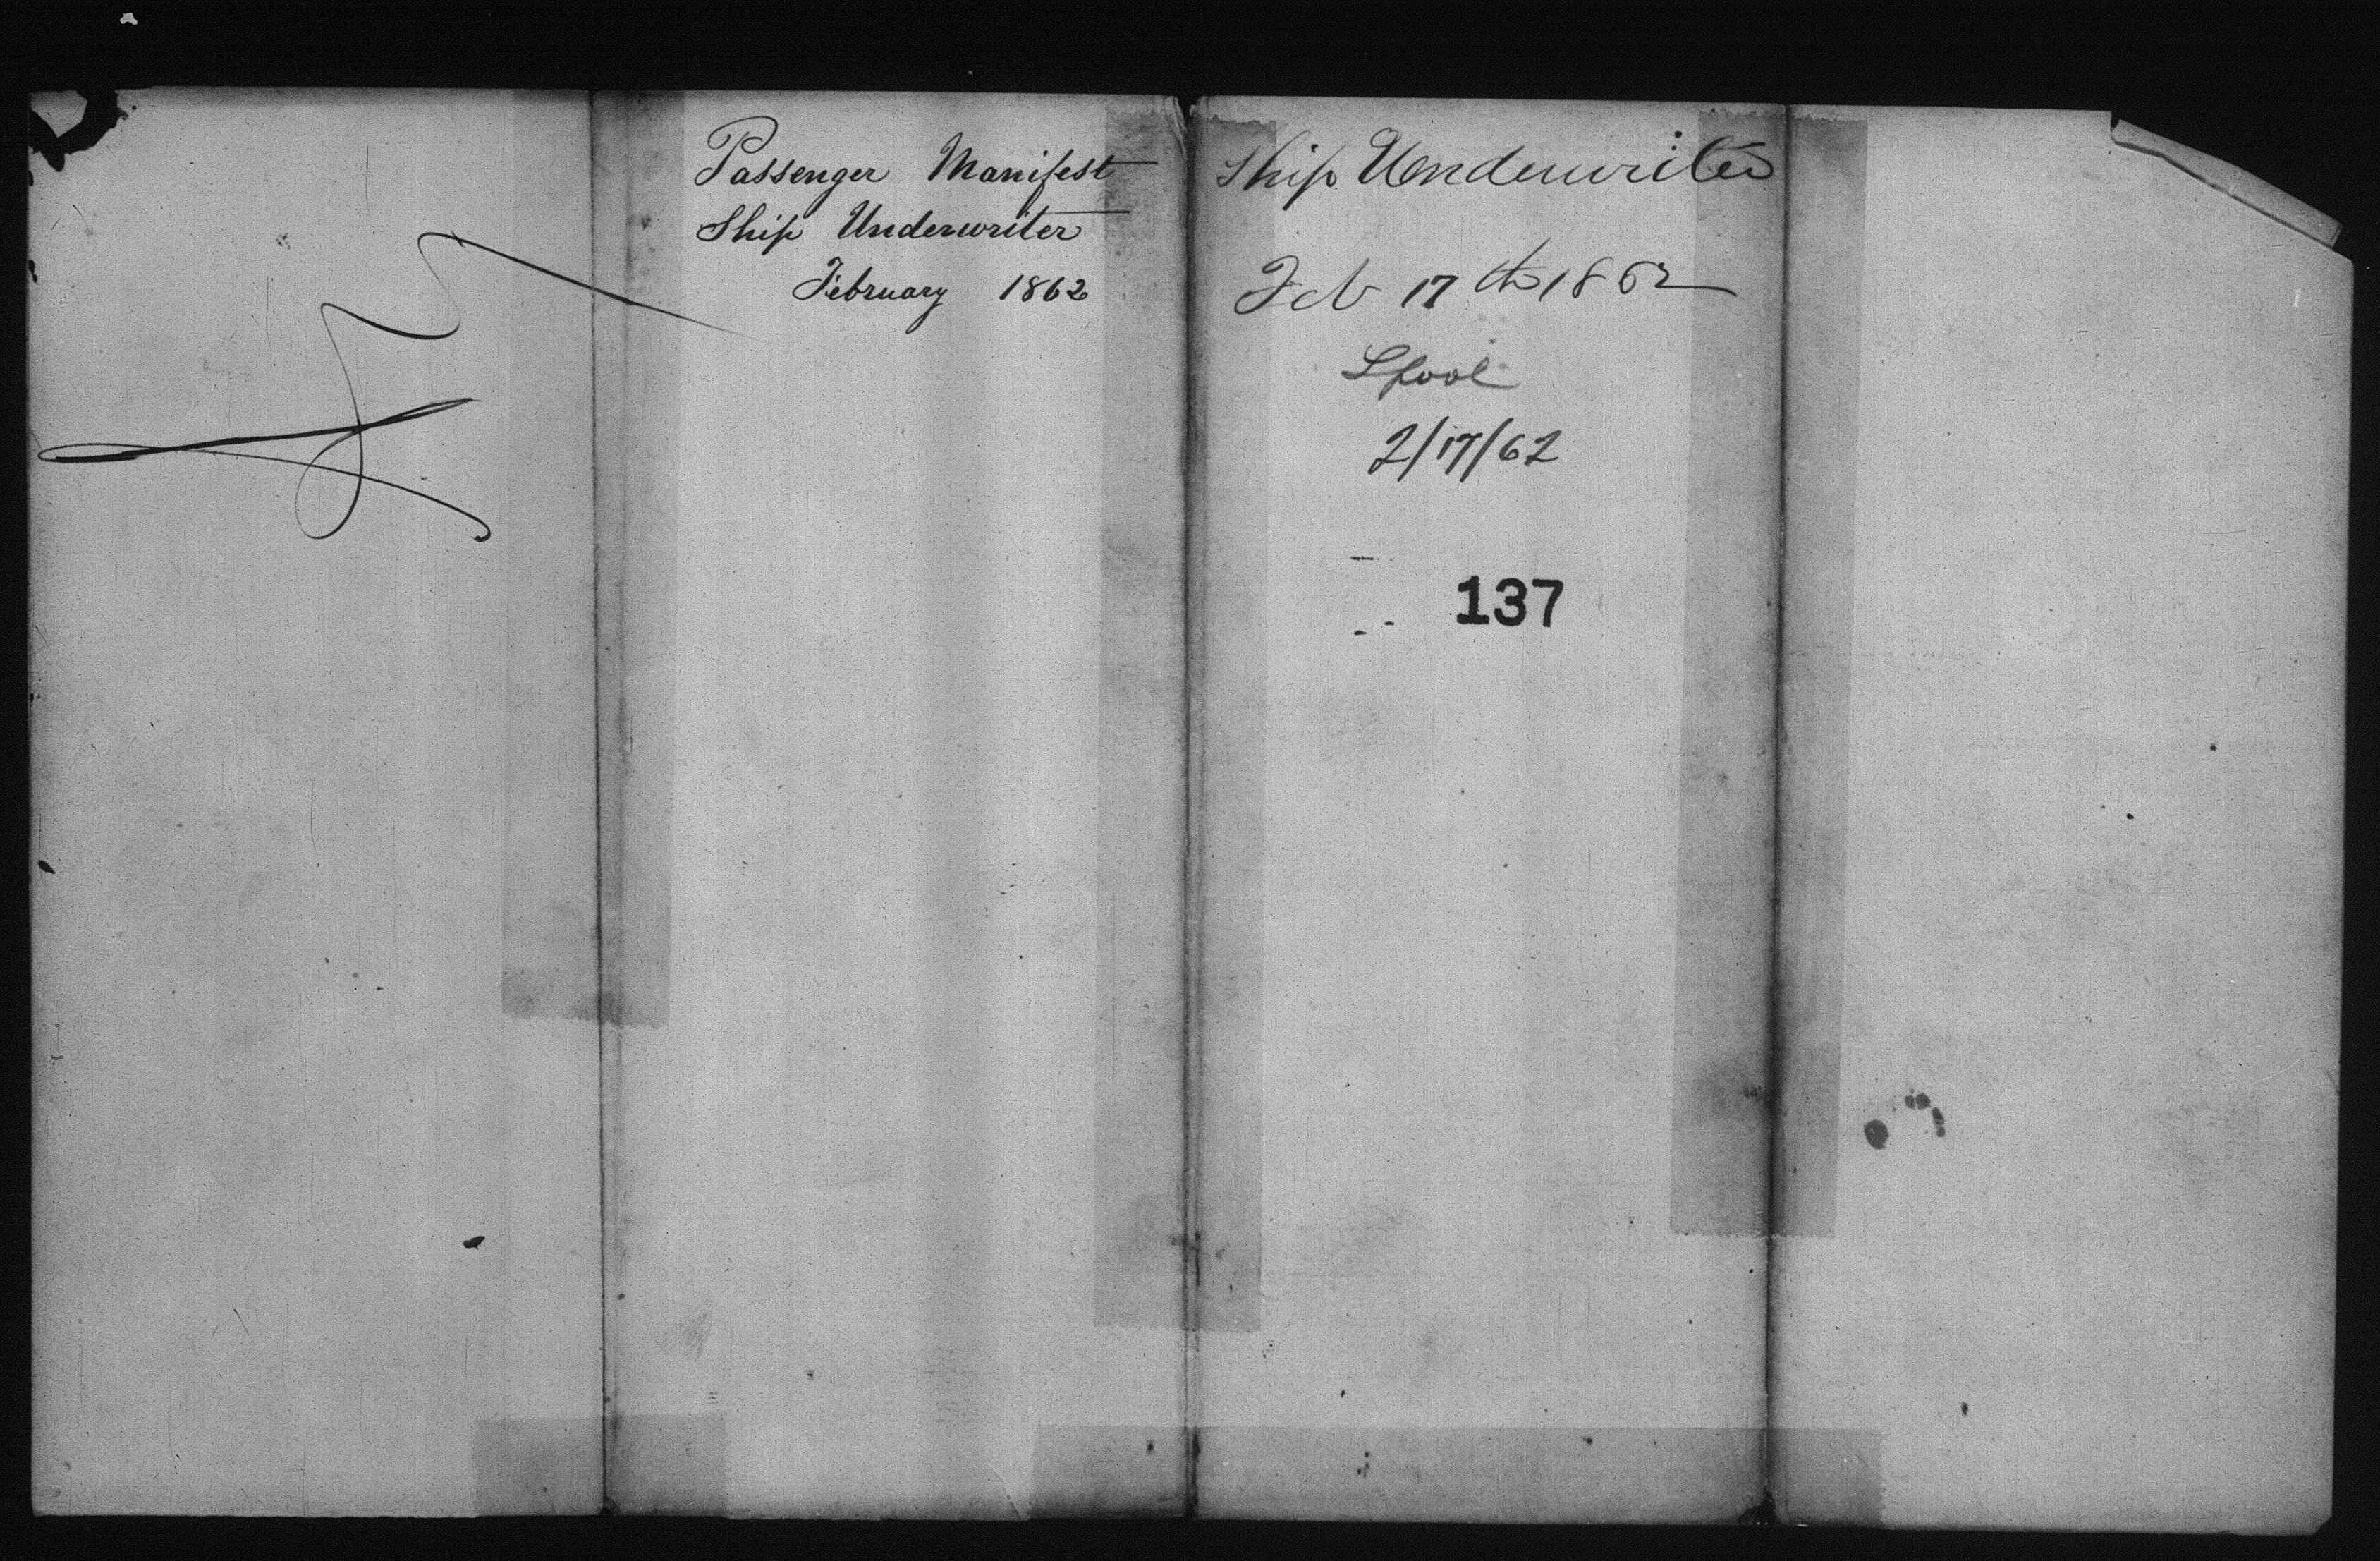 Passenger Manifest
Ship Underwriter
February 1862
Ship Underwriter
Feb 17th 1862
Lpool
2/17/62
137